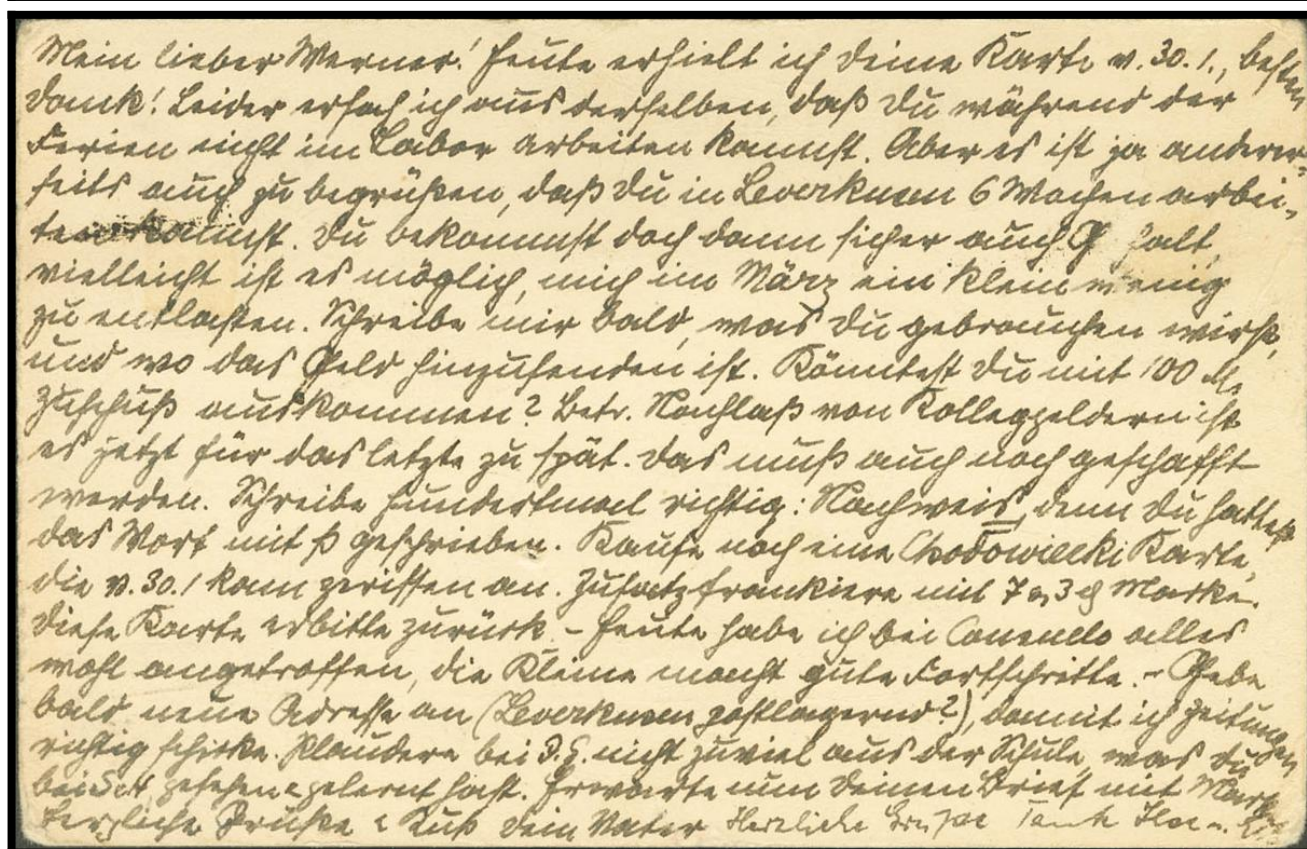 Mein lieber Werner! Heute erhielt ich deine Karte v. 30.1., besten
Dank! Leider ersah ich aus derselben, daß Du während der
Ferien nicht im Labor arbeiten kannst. Aber es ist ja anderer-
seits auch zu begrüßen, daß Du in Leverkusen 6 Wochen arbei-
ten kannst. Du bekommst doch dann sicher auch G halt,
vielleicht ist es möglich, mich im März ein klein wenig
zu entlasten. Schreibe mir bald, was Du gebrauchen wirst,
und wo das Geld hinzusenden ist. Könntest Du mit 100 M.
Zuschuß auskommen? Betr. Nachlaß von Kolleggeldern ist
es jetzt für das letzte zu spät. Das muß auch noch geschafft
werden. Schreibe hundertmal richtig: Nachweis, denn Du hattest
das Wort mit ß geschrieben. Kaufe noch eine Chodowiecki Karte,
die v. 30.1 kam zerissen an. Zusatzfrankiere mit 7 3 Marke.
Diese Karte erbitte zurück. - Heute habe ich bei alles
wohl angetroffen, die Kleine macht gute Fortschritte. - Gebe
bald neue Adresse an (Leverkusen postlagernd?), damit ich Zeitungen
richtig schicke. Plaudere bei nicht zuviel aus der Schule, was Du
bei gesehen & gelernt hast. Erwarte nun Deinen Brief mit
Herzliche Grüße & Kuß Dein Vater Herzliche Grüße Tante